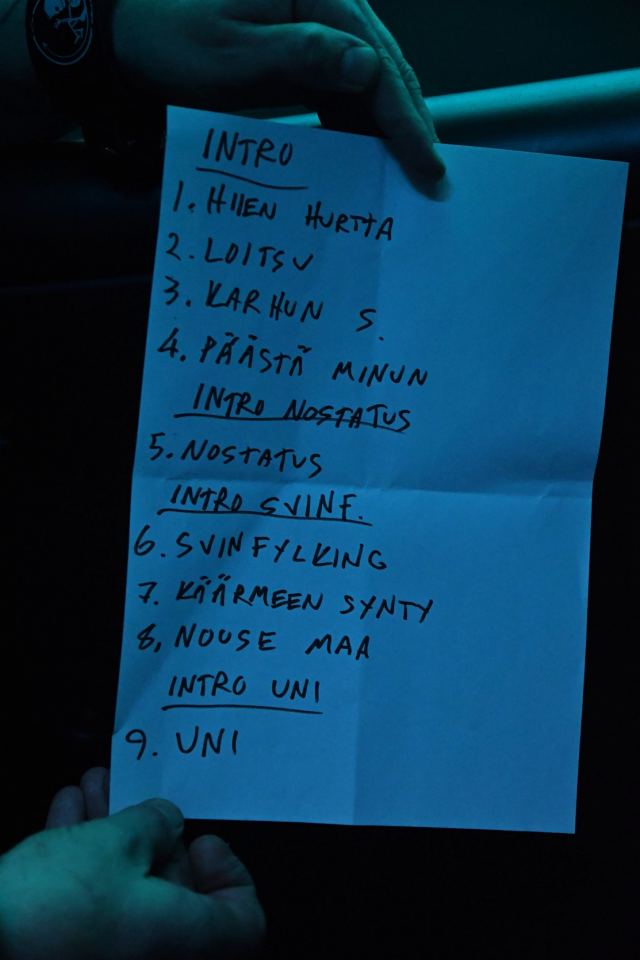 INTRO
1. HIIEN HURTTA
2. LOITSU
3. KARHUN S.
4. PÄÄSTÄ MINUN
INTRO NOSTATUS
5. NOSTATUS
INTRO SVINF.
6. SVINFYLKING
7. KÄÄRMEEN SYNTY
8, NOUSE MAA
INTRO UNI
9. UNI